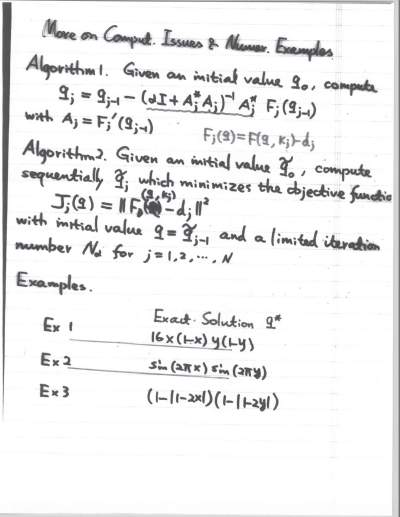 More on Comput. Issues & Numer. Examples
Algorithm 1. Given an initial value q₀, compute
qⱼ = qⱼ₋₁ − (αI + Aⱼ* Aⱼ)⁻¹ Aⱼ* Fⱼ(qⱼ₋₁)
with Aⱼ = Fⱼ'(qⱼ₋₁)
Fⱼ(q) = F(q, kⱼ) − dⱼ
Algorithm 2. Given an initial value q̃₀, compute
sequentially q̃ⱼ which minimizes the objective functio
Jⱼ(q) = ‖F(q, kⱼ) − dⱼ‖²
with initial value q = q̃ⱼ₋₁ and a limited iteration
number Nₐ for j = 1, 2, ⋯, N
Examples.
Exact Solution q*
Ex 1 16x(1−x) y(1−y)
Ex 2 sin(2πx) sin(2πy)
Ex 3 (1−|1−2x|)(1−|1−2y|)